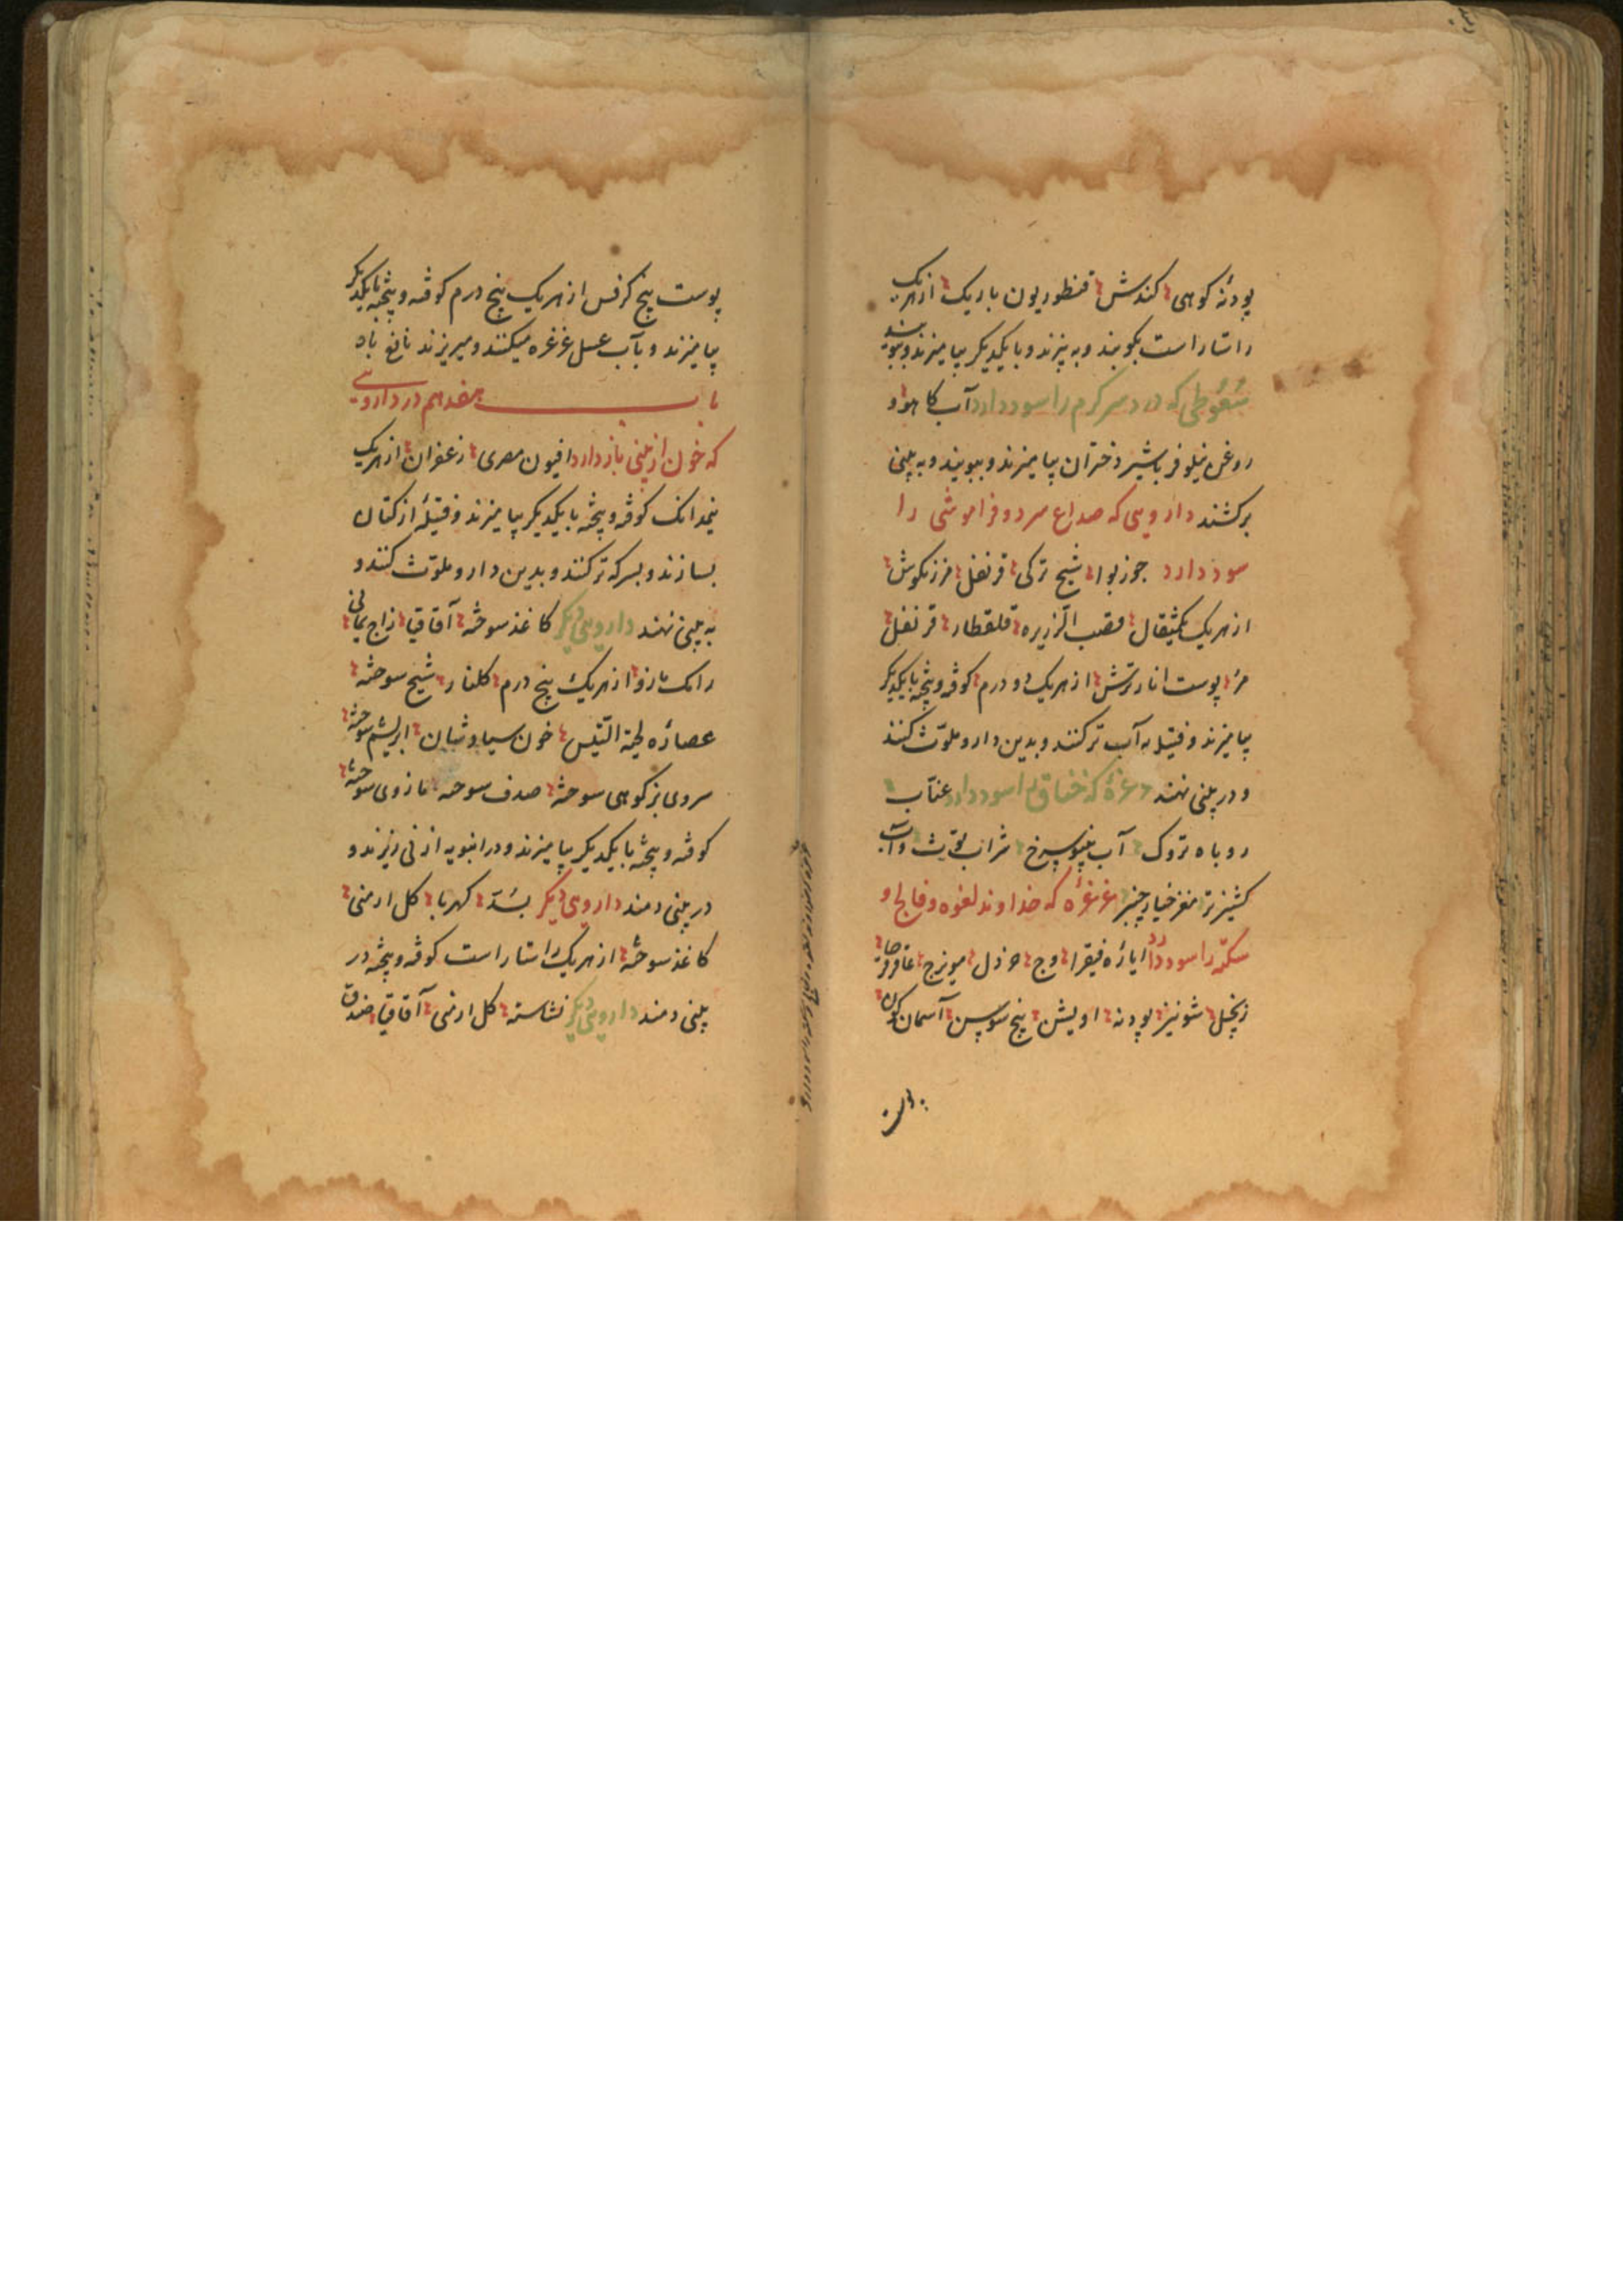 پودنه کوهی کندش قنطوریون باریک از هریک
راستاراست بکوبند و به پزند و با یکدیگر بیامیزند و ببویند
سُعُوطی که درد سر کرم را سود دارد آب کاهو و
روغن نیلوفر با شیر دختران بیامیزند و ببویند و به بینی
برکشند داروهی که صداع سرد و فراموشی را
سود دارد جوز بوا شیح ترکی قرنفل مرزنکوش
از هریک یکمثقال قصب الذریره قلقطار قرنفل
مر پوست انار ترش از هریک دو درم کوفته و بیخته بایکدیکر
بیامیزند و فتیله به آب تر کنند و بدین دارو ملوّث کنند
و در بینی نهند غرغره که خناق را سود دارد عنّاب
روباه تروک آب سرخ شراب توث و آب
کشنیز تر مغز خیار چنبر غرغرهٔ که خداوند لقوه و فالج و
سکته را سود دارد ایاره فیقرا وج خردل مویزج عاقرقرحا
زنجبیل شونیز پودنه اویشن بیخ سوسن آسمان کون
پوست
پوست بیخ کرفس از هریک پنج درم کوفته و بیخته بایکدیکر
بیامیزند و بآب عسل غرغره میکنند و میریزند نافع باد
باب هفدهم در داروهی
که خون از بینی باز دارد افیون مصری زعفران از هریک
نیمدانک کوفته و بیخته با یکدیکر بیامیزند و فتیلهٔ از کتان
بسازند و بسرکه تر کنند و بدین دارو ملوّث کنند و
به بینی نهند داروهی دیکر کاغذ سوخته آقاقیا زاج یمانی
رامک مازو از هریک پنج درم کلنار شیح سوخته
عصارهٔ لحیة التیس خون سیاوشان ابریشم سوخته
سروی بز کوهی سوخته صدف سوخته مازوی سوخته
کوفته و بیخته با یکدیکر بیامیزند و در انبوبه از نی ریزند و
در بینی دمند داروهی دیکر بسّد کهربا کل ارمنی
کاغذ سوخته از هریک راستاراست کوفته و بیخته در
بینی دمند داروهی دیکر نشاسته کل ارمنی آقاقیا